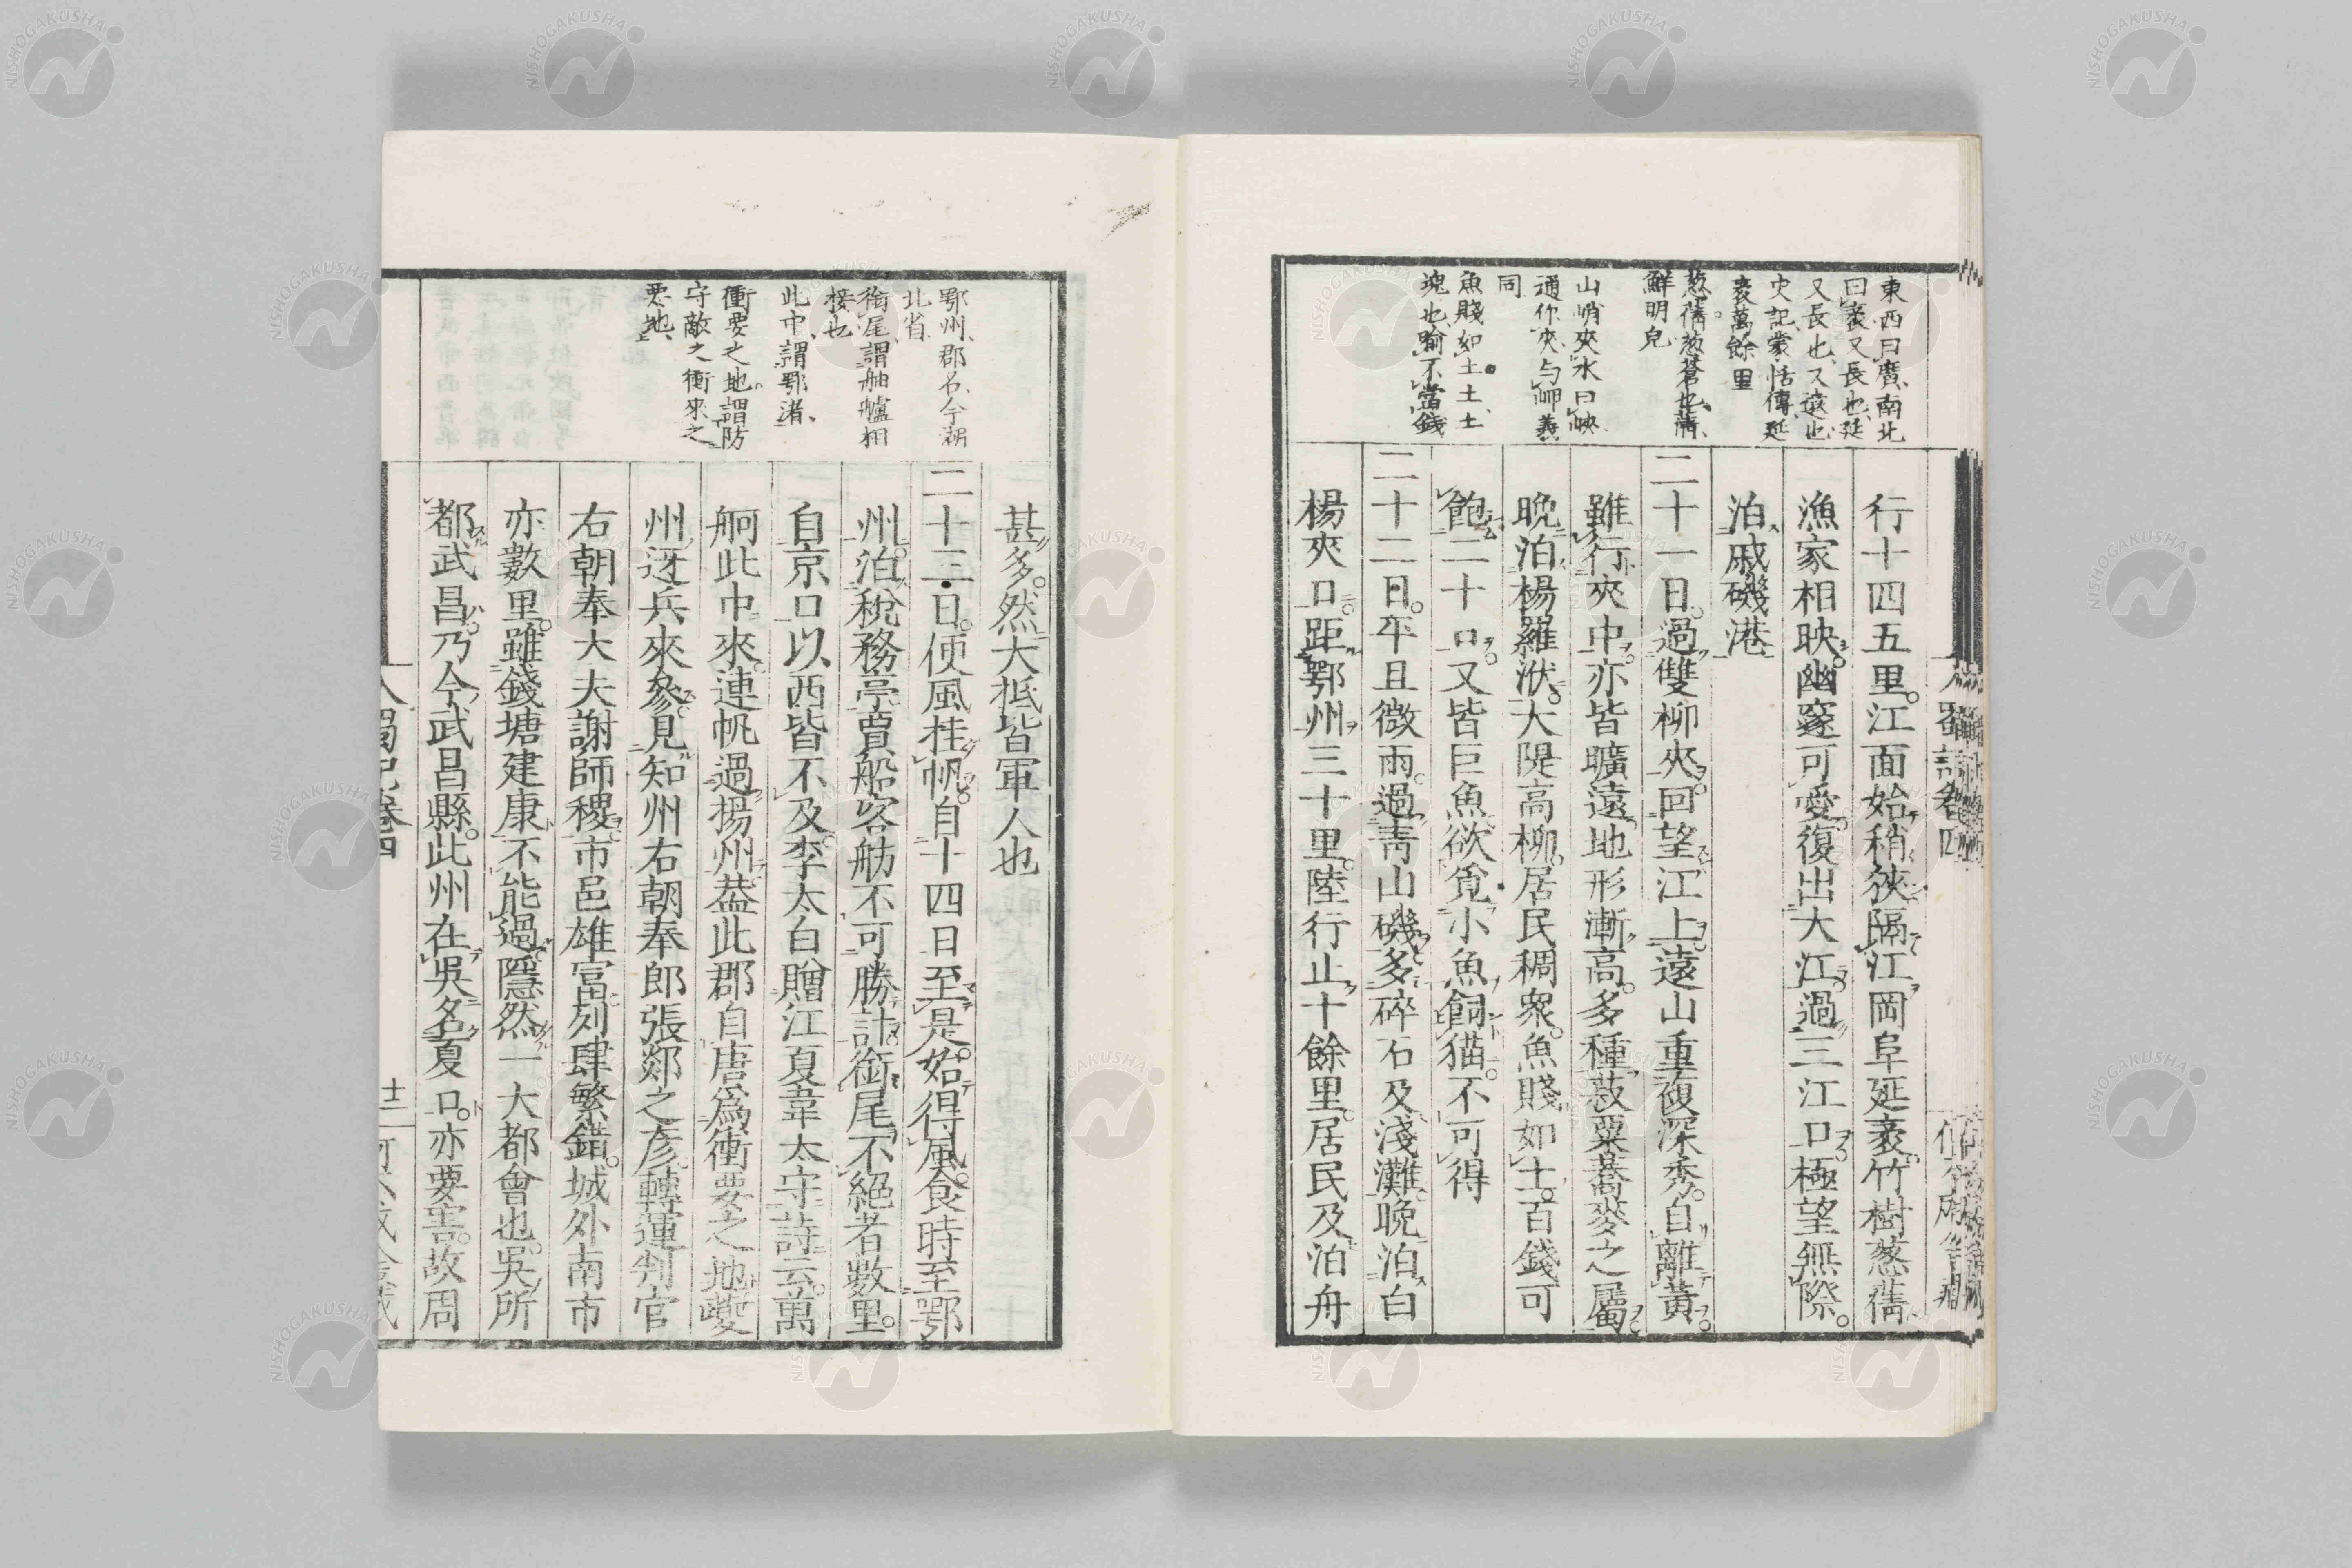 東西曰廣、南北
曰袤又長也、延
又長也、又遠也
史記蒙恬傳、延
袤萬餘里
葱蒨葱蒼也、蒨
鮮明皃
山峭夾水曰峽
通作夾、与岬義
同
魚賤如土土、土
塊也、喻不當錢
行十四五里。江面始稍狹。隔江岡阜延袤。竹樹葱蒨
漁家相映。幽邃可愛。復出大江。過三江口。極望無際。
泊戚磯港
二十一日。過雙柳夾。回望江上。遠山重複深秀。自離黃。
雖行夾中。亦皆曠遠。地形漸高。多種菽粟蕎麥之屬。
晚泊楊羅洑。大隄高柳。居民稠衆。魚賤如土。百錢可
飽二十口。又皆巨魚欲覓小魚飼猫。不可得
二十二日。平旦微雨。過青山磯。多碎石及淺灘。晚泊白
楊夾口。距鄂州三十里。陸行止十餘里。居民及泊舟
鄂州、郡名、今湖
北省
銜尾、謂舳艫相
接也
此中、謂鄂渚、
衝要之地。謂防
守敵之衝來之
要地、
甚多。然大抵皆軍人也
二十三日。便風挂帆。自十四日至是。始得風。食時至鄂
州。泊稅務亭。賈船客舫不可勝計。銜尾不絕者數里。
自京口以西皆不及。李太白贈江夏韋太守詩云。萬
舸此中來。連帆過揚州。葢此郡自唐爲衝要之地。夔
州迓兵來參。見知州右朝奉郎張郯之彥。轉運判官
右朝奉大夫謝師稷。市邑雄富。列肆繁錯。城外南市
亦數里。雖錢塘建康不能過。隱然一大都會也。吳所
都武昌。乃今武昌縣。此州在吳名夏口。亦要害。故周
入蜀記卷四
廿二